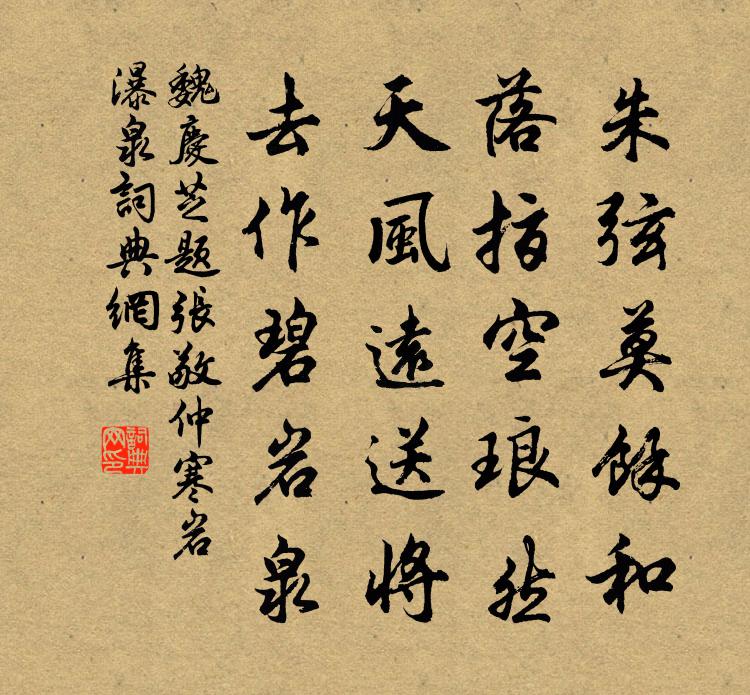 朱弦莫餘和
落指空琅然
天風遠送將
去作碧岩泉
魏慶芝題張敬仲寒岩
瀑泉詞典網集
詞典网印